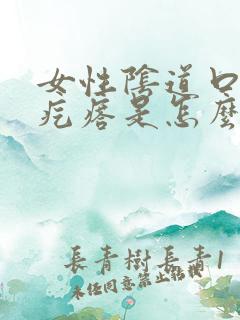 女性陰道口
疙瘩是怎麼
長青樹長青1
未任同意禁止私摸